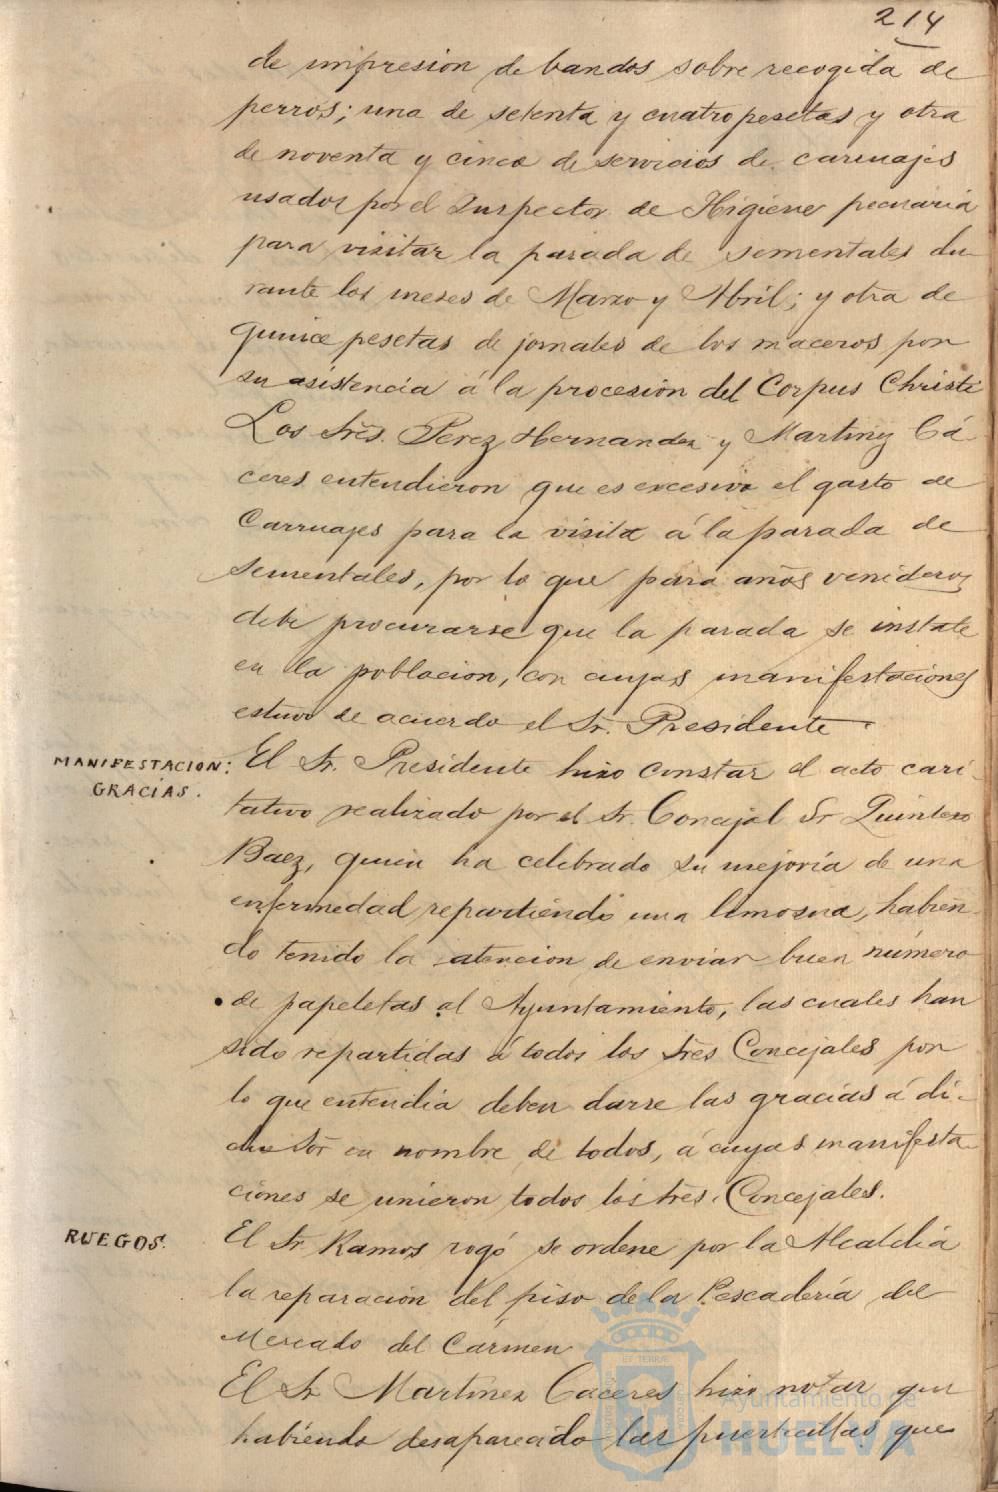 214
de impresion de bandos sobre recogida de
perros; una de setenta y cuatro pesetas y otra
de noventa y cinco de servicios de carruajes
usados por el Inspector de Higiene pecuaria
para visitar la parada de sementales du-
rante los meses de Marzo y Abril; y otra de
quince pesetas de jornales de los maceros por
su asistencia á la procesion del Corpus Christi
Los Sres. Perez Hernandez y Martinez Cá-
ceres entendieron que es excesivo el gasto de
Carruajes para la visita á la parada de
sementales, por lo que para años venideros
debe procurarse que la parada se instale
en la poblacion, con cuyas manifestaciones
estuvo de acuerdo el Sr. Presidente.
MANIFESTACION:
GRACIAS.
El Sr. Presidente hizo constar el acto cari-
tativo realizado por el Sr. Concejal Sr Quintero
Baez, quien ha celebrado su mejoría de una
enfermedad repartiendo una limosna, habien-
do tenido la atencion de enviar buen número
de papeletas al Ayuntamiento, las cuales han
sido repartidas á todos los Sres Concejales por
lo que entendia deben darse las gracias á di-
cho Sor en nombre de todos, á cuyas manifesta-
ciones se unieron todos los Sres. Concejales.
RUEGOS.
El Sr. Ramos rogó se ordene por la Alcaldia
la reparacion del piso de la Pescadería del
Mercado del Cármen
El Sr Martinez Caceres hizo notar que
habiendo desaparecido las puertecillas que
Ayuntamiento de
HUELVA